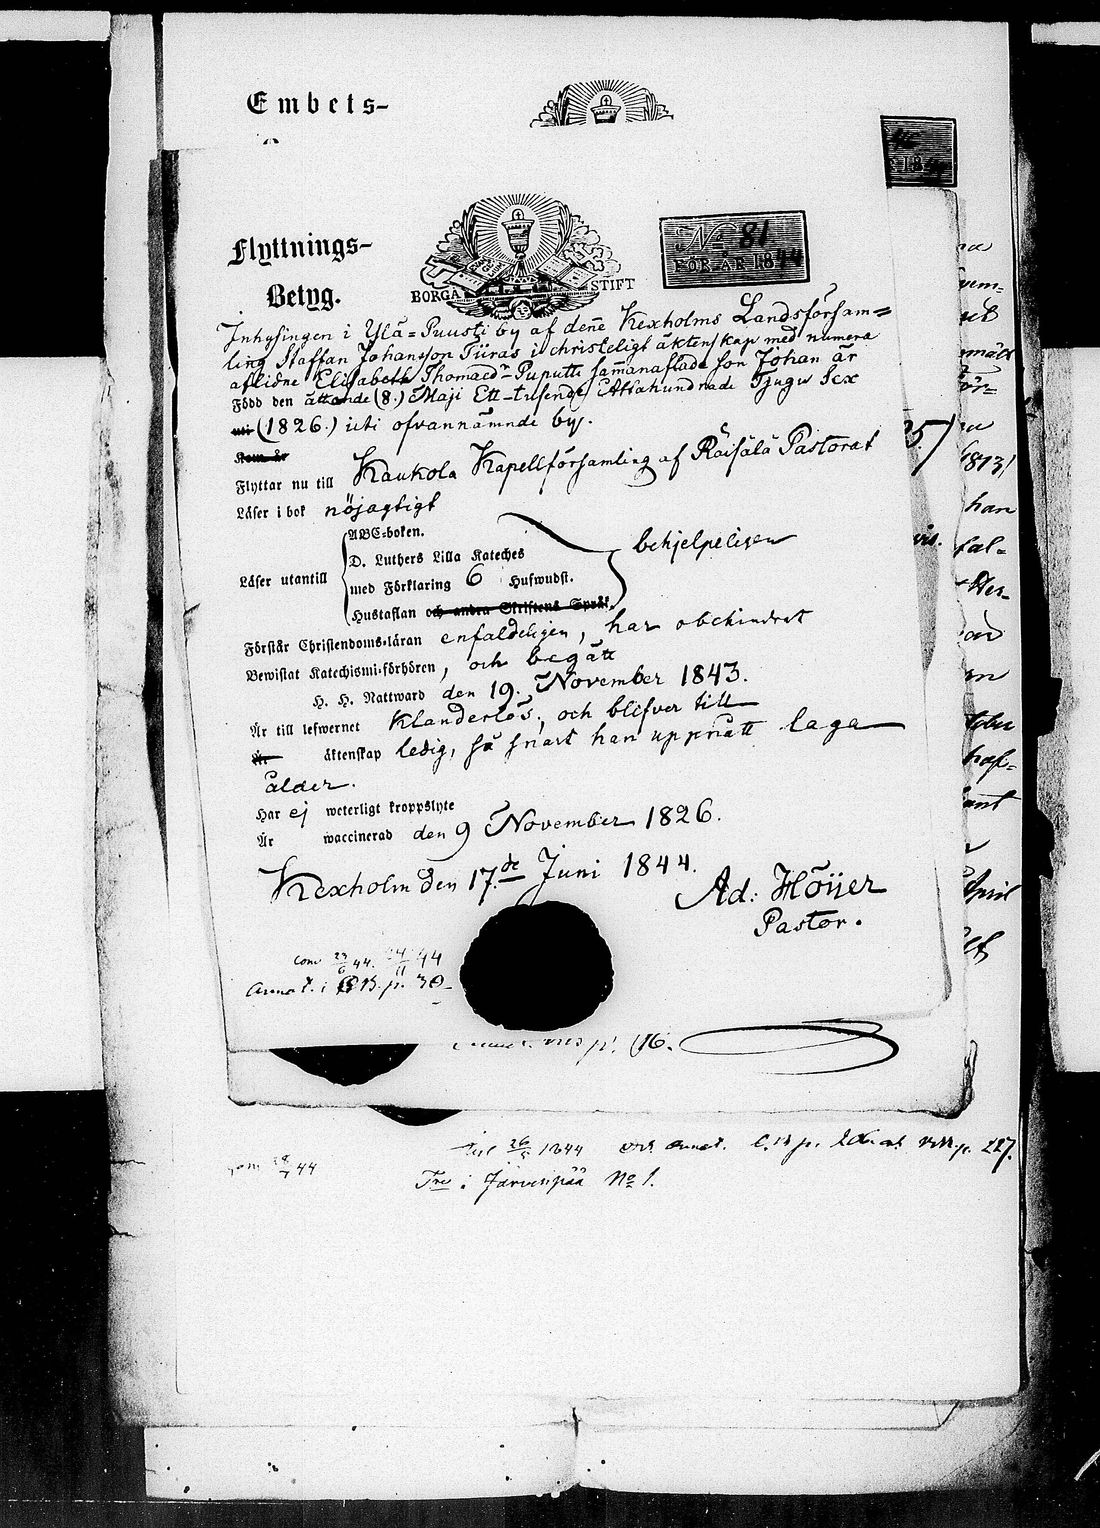 Embets-
Flyttnings-
Betyg.
BORGÅ STIFT
No 81
FÖR ÅR 1844
Inhysingen i Ylä-Puusti by af denne Kexholms Landsförsam=
ling Staffan Johansson Tiiras i christeligt äktenskap med numera
aflidne Elisabeth Thomaedr Puputti sammanaflade son Johan är
Född den åttonde (8.) Maji Ett-tusende Åttahundrade Tjugu Sex
(1826.) uti ofvannämnde by.
Flyttar nu till Kaukola Kapellförsamling af Räisälä Pastorat
Läser i bok nöjagtigt
Läser utantill
ABC-boken.
D. Luthers Lilla Kateches
med Förklaring 6 Hufwudst.
Hustaflan och andra Skriftens Språk.
behjelpeligen
Förstår Christendoms-läran enfaldeligen, har obehindrat
Bewistat Katechismi-förhören, och begått
H. H. Nattward den 19. November 1843.
Är till lefwernet Klanderlös, och blifver till
äktenskap ledig, så snart han uppnått laga
ålder.
Har ej weterligt kroppslyte
Är waccinerad den 9 November 1826.
Kexholm den 17de Juni 1844.
Ad: Höijer
Pastor.
44.
p. 30
p. 116.
1844
p. 227.
i Järvenpää No 1.
1813)
han
fal=
April